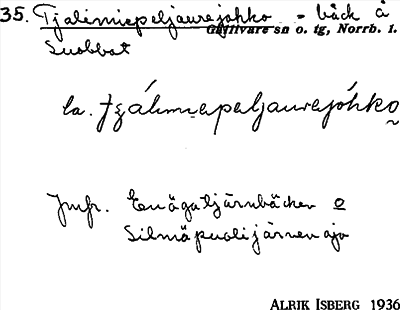 35. Tjalimiepeljaurejohko - bäck å
Gällivare sn o. tg, Norrb. l.
Suobbat
la. tʒálimiepeljaurejóhko̰
Jmfr. Enögatjärnbäcken o
Silmäpuolijärvenoja
ALRIK ISBERG 1936